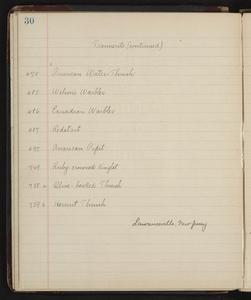 30
Transients (continued)
675 American Water-Thrush
685 Wilson's Warbler
686 Canadian Warbler
687 Redstart
697 American Pipit
749 Ruby-crowned Kinglet
758 a Olive-backed Thrush
759 b Hermit Thrush
Lawrenceville, New Jersey